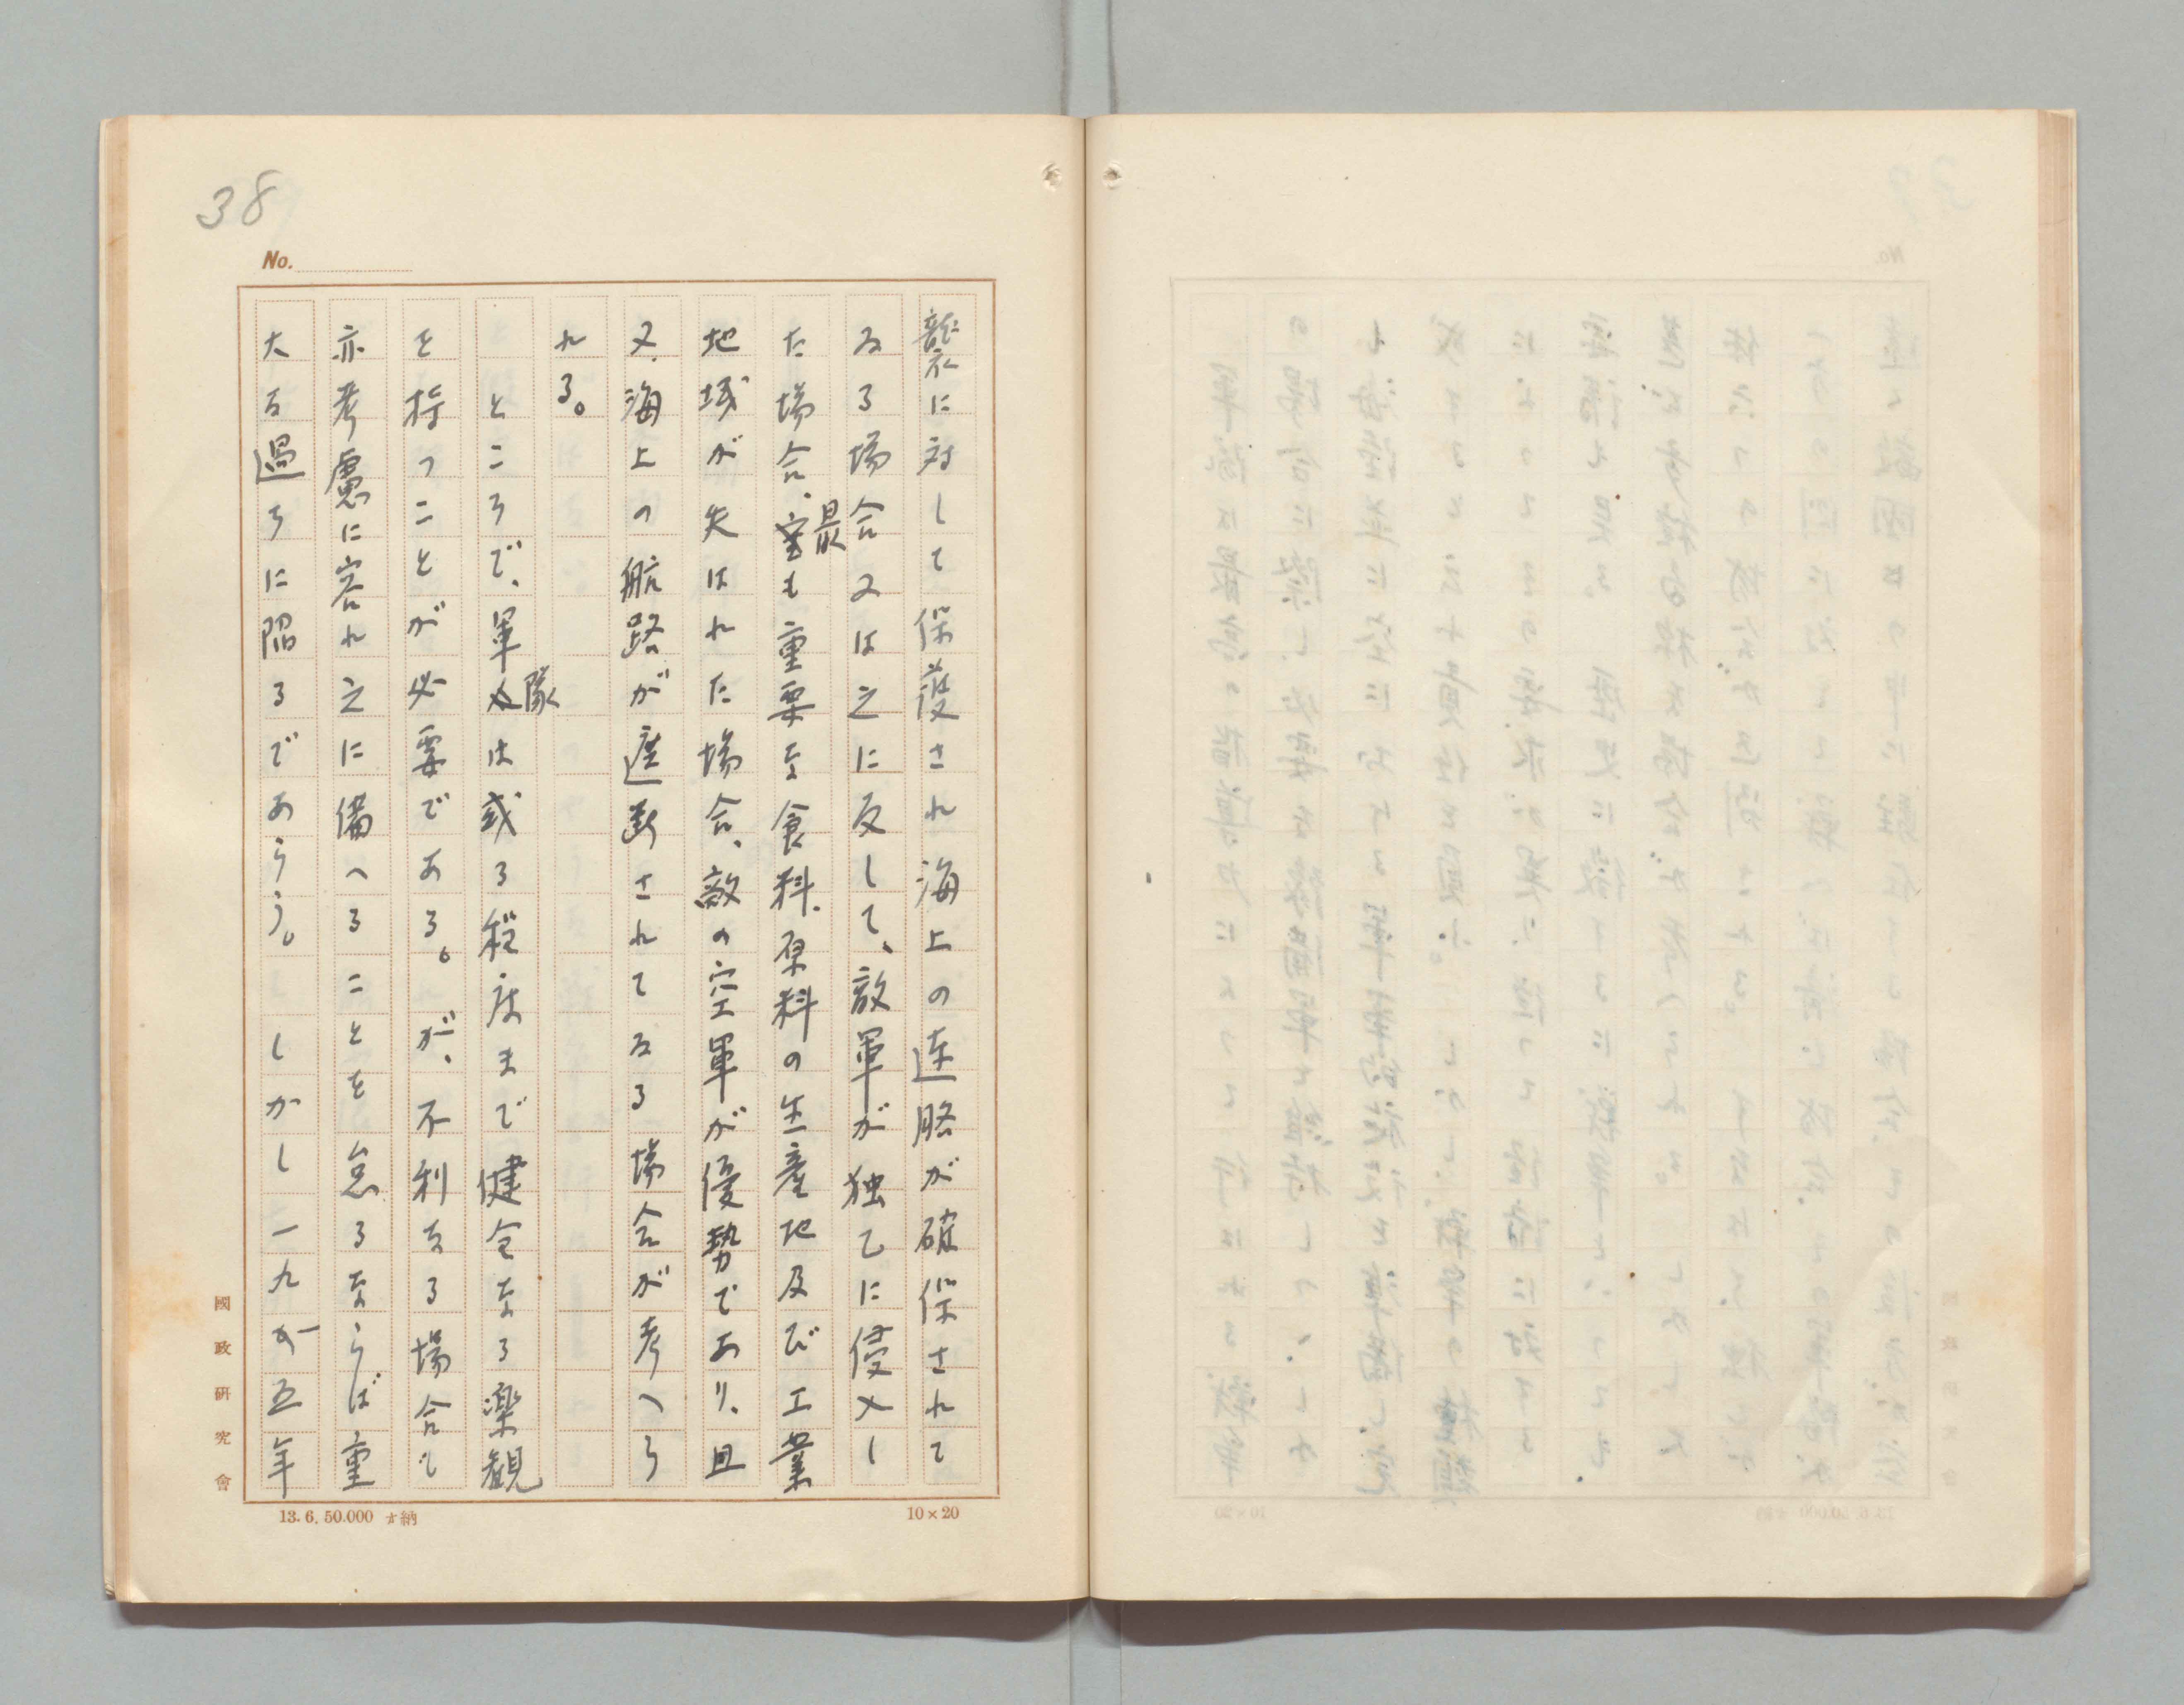 38
No.
襲に対して保護され海上の連胳が確保されて
ゐる場合又は之に反して、敵軍が独乙に侵入し
た場合、最も重要な食料、原料の生産地及び工業
地域が失はれた場合、敵の空軍が優勢であり、且
又、海上の航路が遮断されてゐる場合が考へら
れる。
ところで、軍隊は或る程度まで健全なる楽観
を持つことが必要である。が、不利なる場合も
亦考慮に容れ之に備へることを怠るならば重
大な過ちに陥るであらう。しかし一九か五年
國政研究會
13.6.50.000 納
10×20